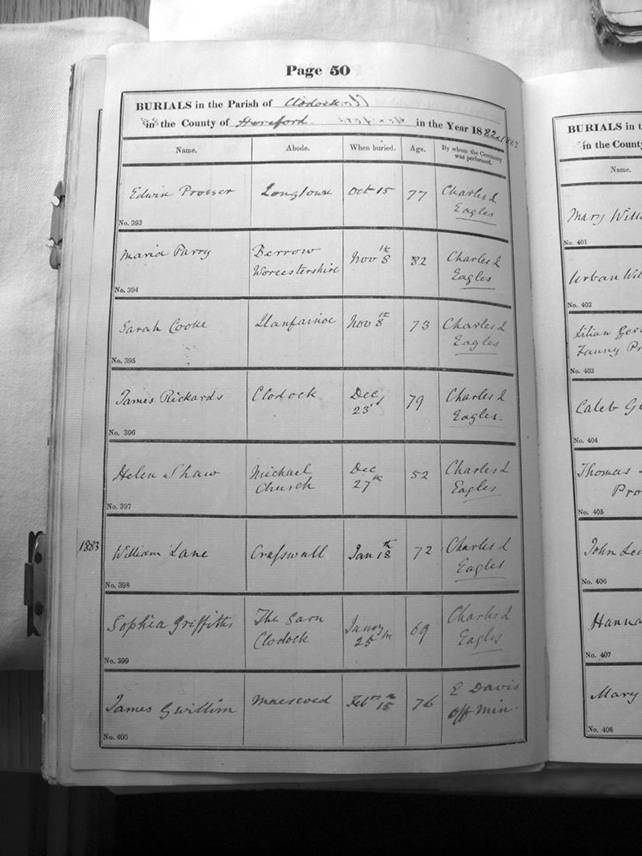 Page 50
BURIALS in the Parish of Clodock
in the County of Hereford in the Year 1882
Name. Abode. When buried. Age. By whom the Ceremony was performed.
Edwin Prosser Longtown Oct 15 77 Charles L
Eagles
No. 393
Maria Parry Berrow Nov 8th 82 Charles L
Worcestershire Eagles
No. 394
Sarah Cooke Llanfainoe Nov 8th 73 Charles L
Eagles
No. 395
James Rickards Clodock Dec 79 Charles L
23d Eagles.
No. 396
Helen Shaw Michael Dec 52 Charles L
Church 27th Eagles
No. 397
1883 William Lane Crafswall Jan 18th 72 Charles L
Eagles
No. 398
Sophia Griffiths The Garn 69 Charles L
Clodock 25th Eagles
No. 399
James Gwillim Maescoed Feb 15th 76 E Davis
Off Min.
No. 400
BURIALS in t
in the Count
Name.
Mary Willi
No. 401
Urban Wil
No. 402
Lilian
Fanny Pr
No. 403
Caleb G
No. 404
Thomas
Pro
No. 405
John Le
No. 406
Hanna
No. 407
Mary
No. 408